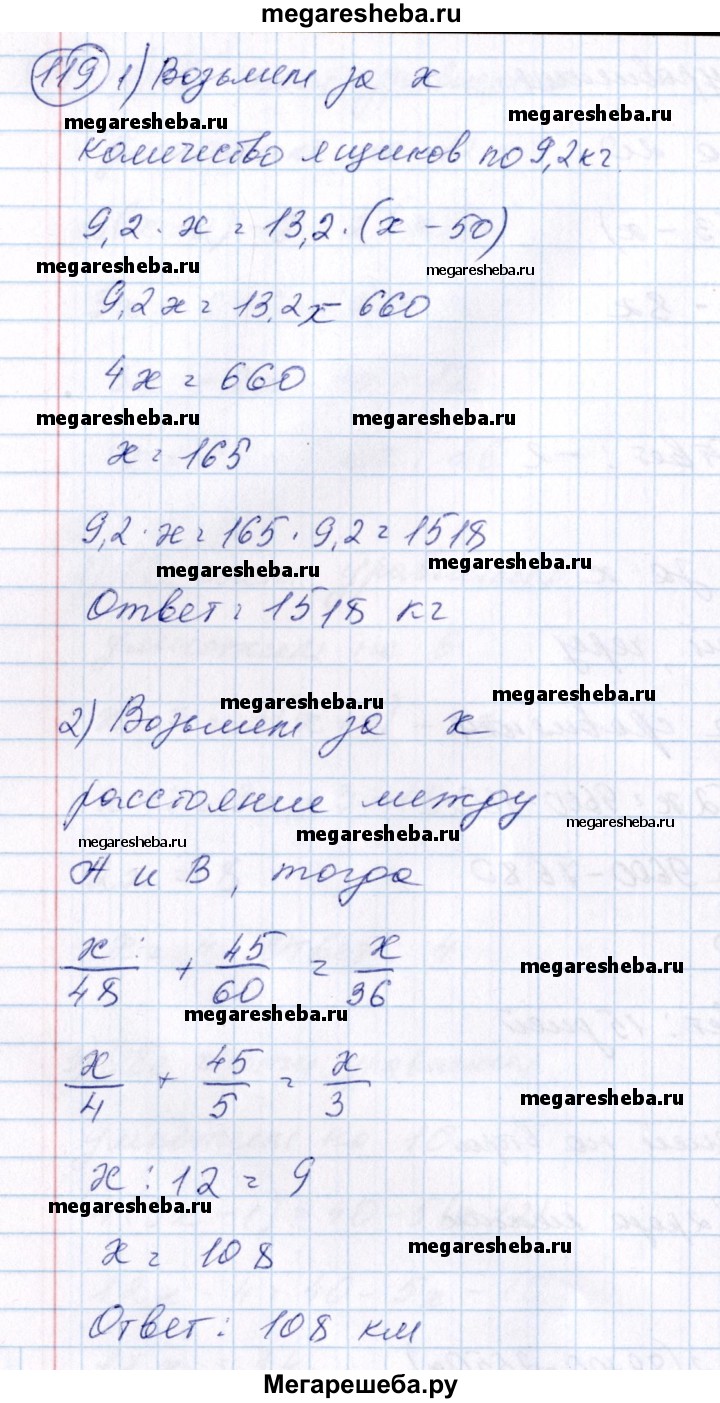 megaresheba.ru
119 1) Возьмем за x
megaresheba.ru megaresheba.ru
количество ящиков по 9,2 кг.
9,2 · x = 13,2 · (x - 50)
megaresheba.ru megaresheba.ru
9,2x = 13,2x - 660
4x = 660
megaresheba.ru megaresheba.ru
x = 165
9,2 · x = 165 · 9,2 = 1518
megaresheba.ru megaresheba.ru
Ответ: 1518 кг
megaresheba.ru megaresheba.ru
2) Возьмем за x
расстояние между
megaresheba.ru megaresheba.ru megaresheba.ru
А и В, тогда
x/48 + 45/60 = x/36
megaresheba.ru megaresheba.ru
x/4 + 45/5 = x/3
megaresheba.ru
x : 12 = 9
megaresheba.ru
x = 108
megaresheba.ru
Ответ: 108 км
Мегарешеба.ру